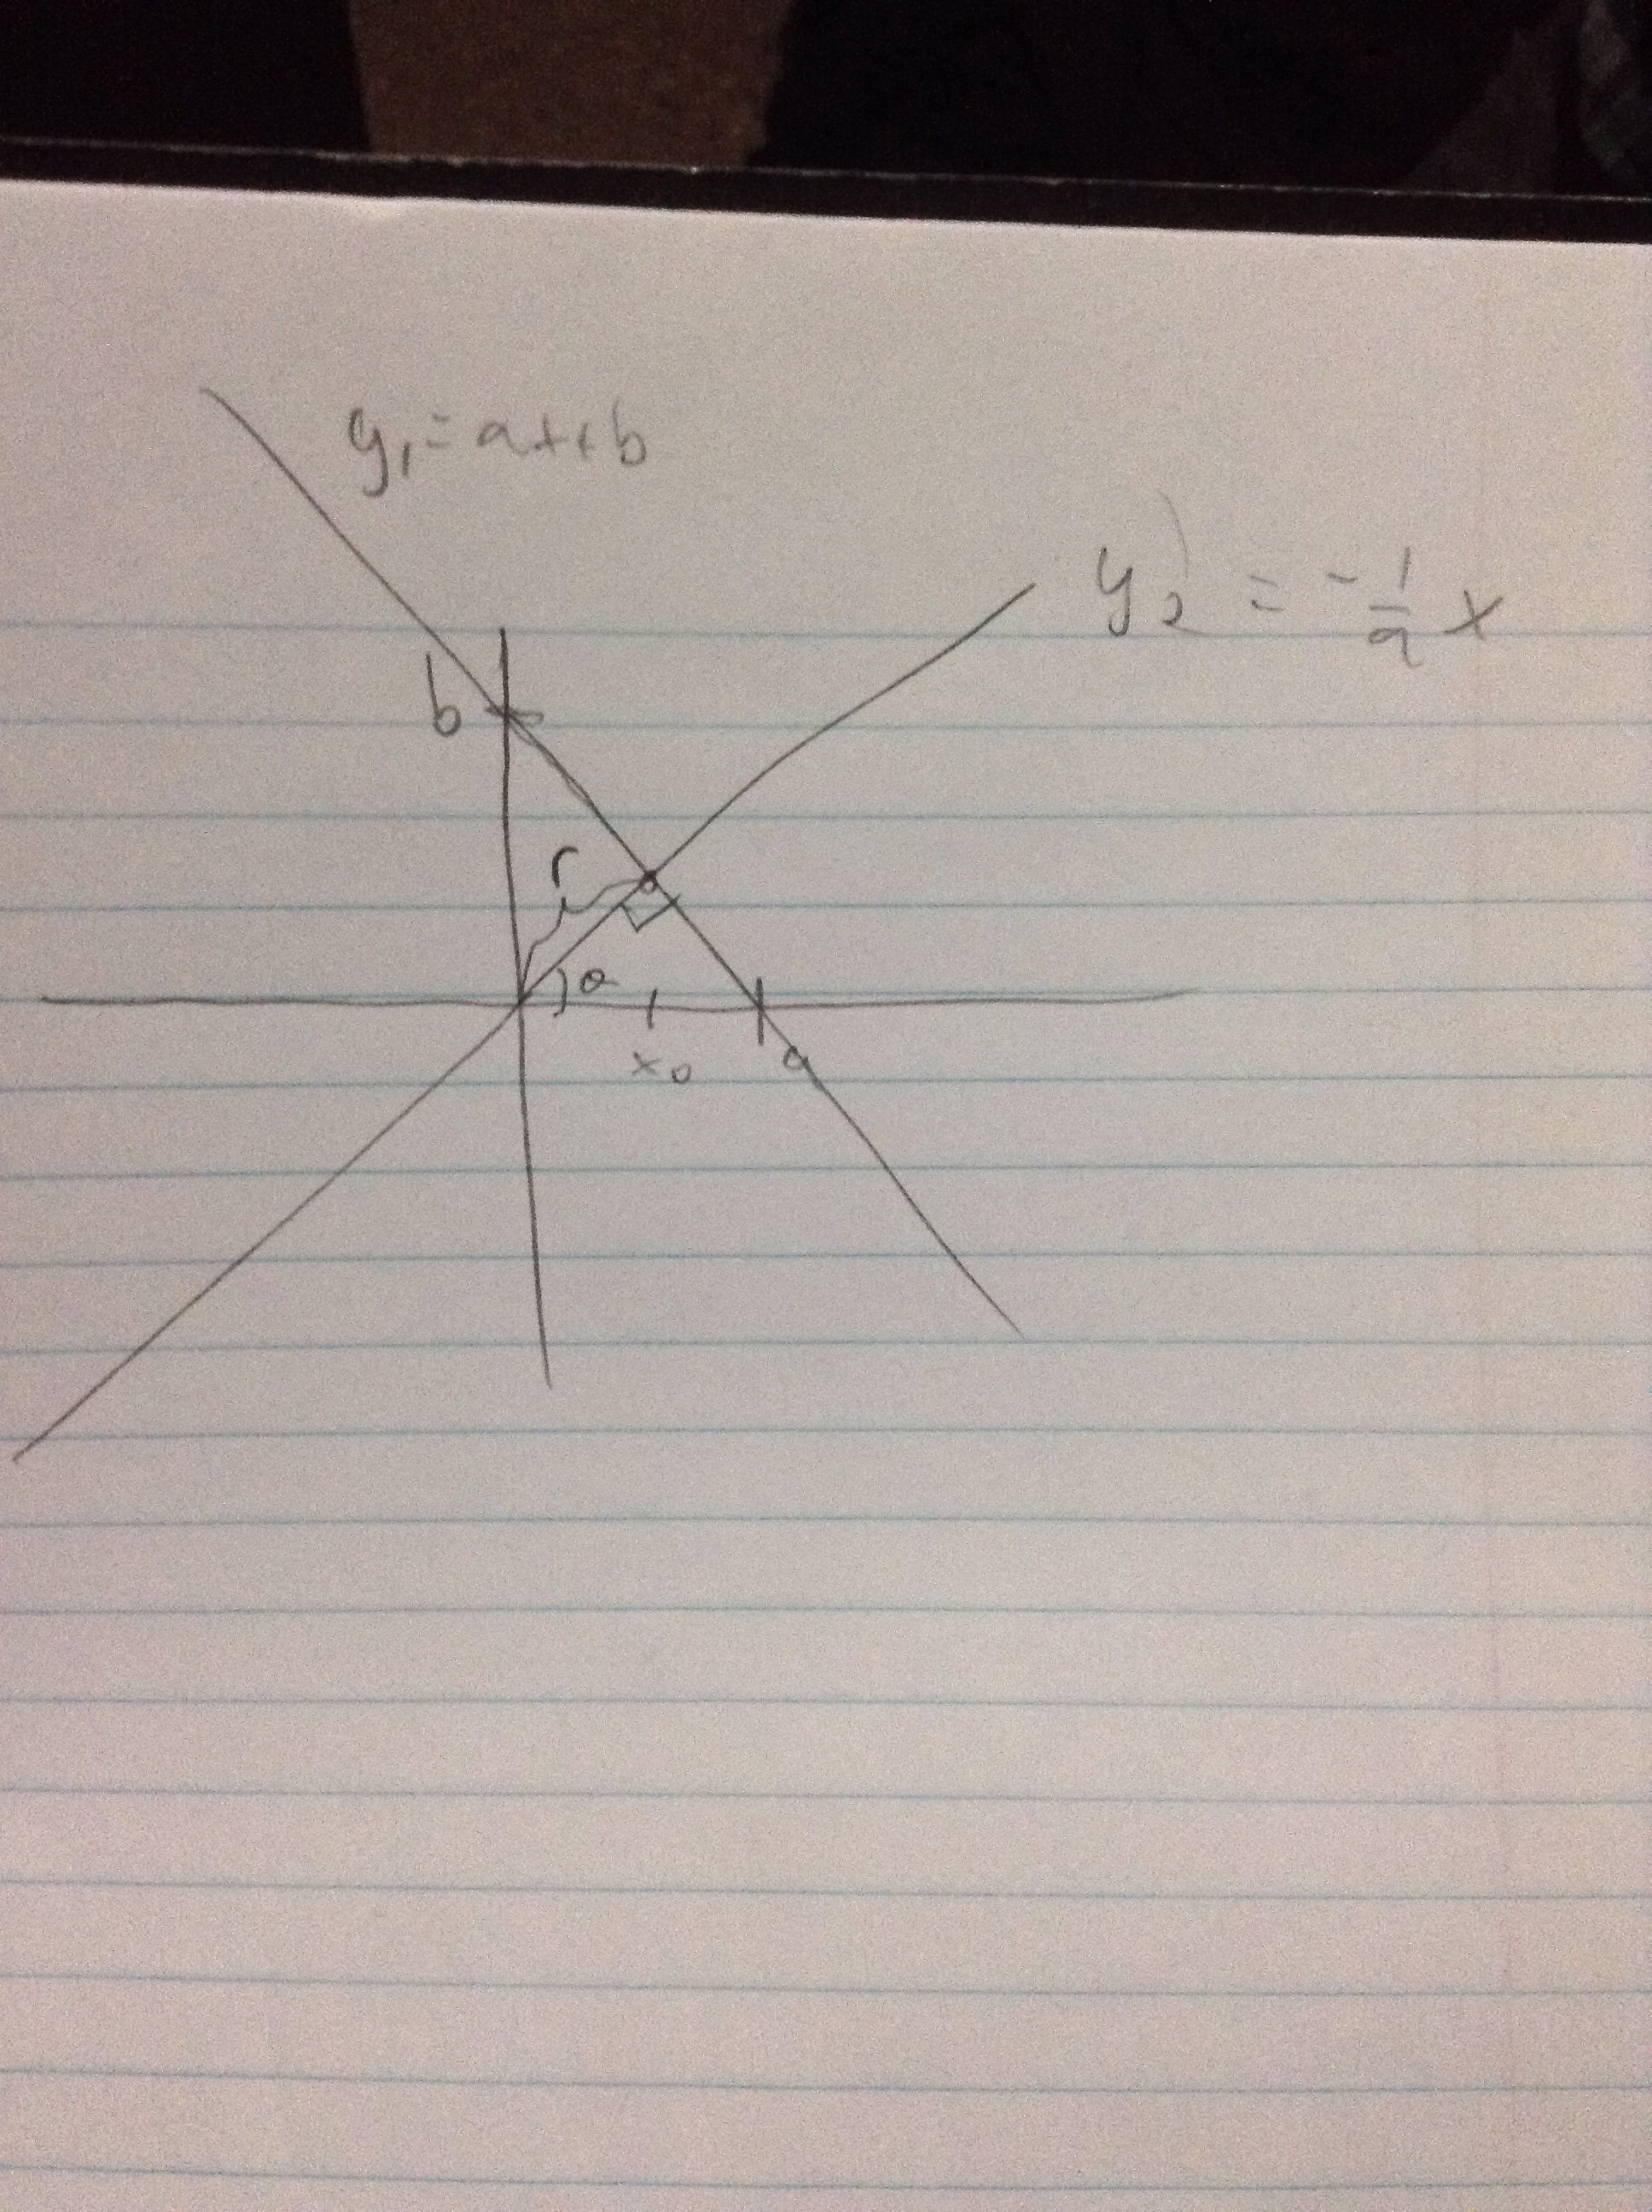 y₁ = ax+b
y₂ = -1/a x
b
r
θ
x₀
a